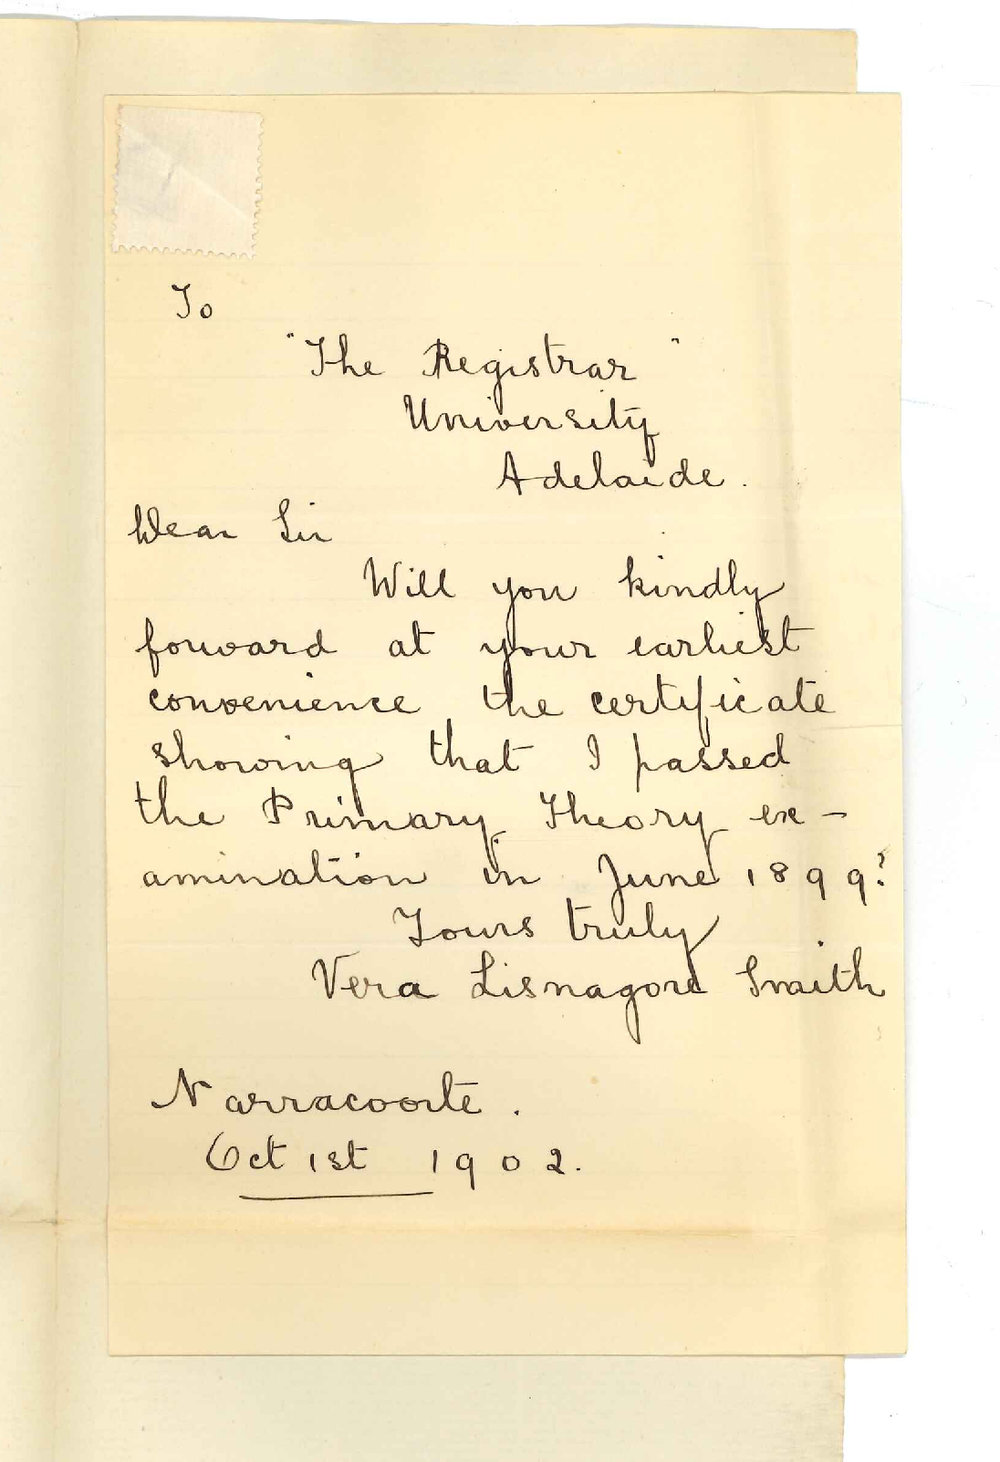 To
"The Registrar"
University
Adelaide.
Dear Sir
Will you kindly
forward at your earliest
convenience the certificate
showing that I passed
the Primary Theory ex-
amination in June 1899?
Yours truly
Vera Lisnagore Smith
Narracoorte.
Oct 1st 1902.